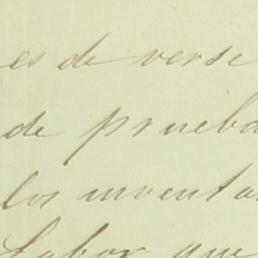 es de verse
de prueba
los inventa
Labor que